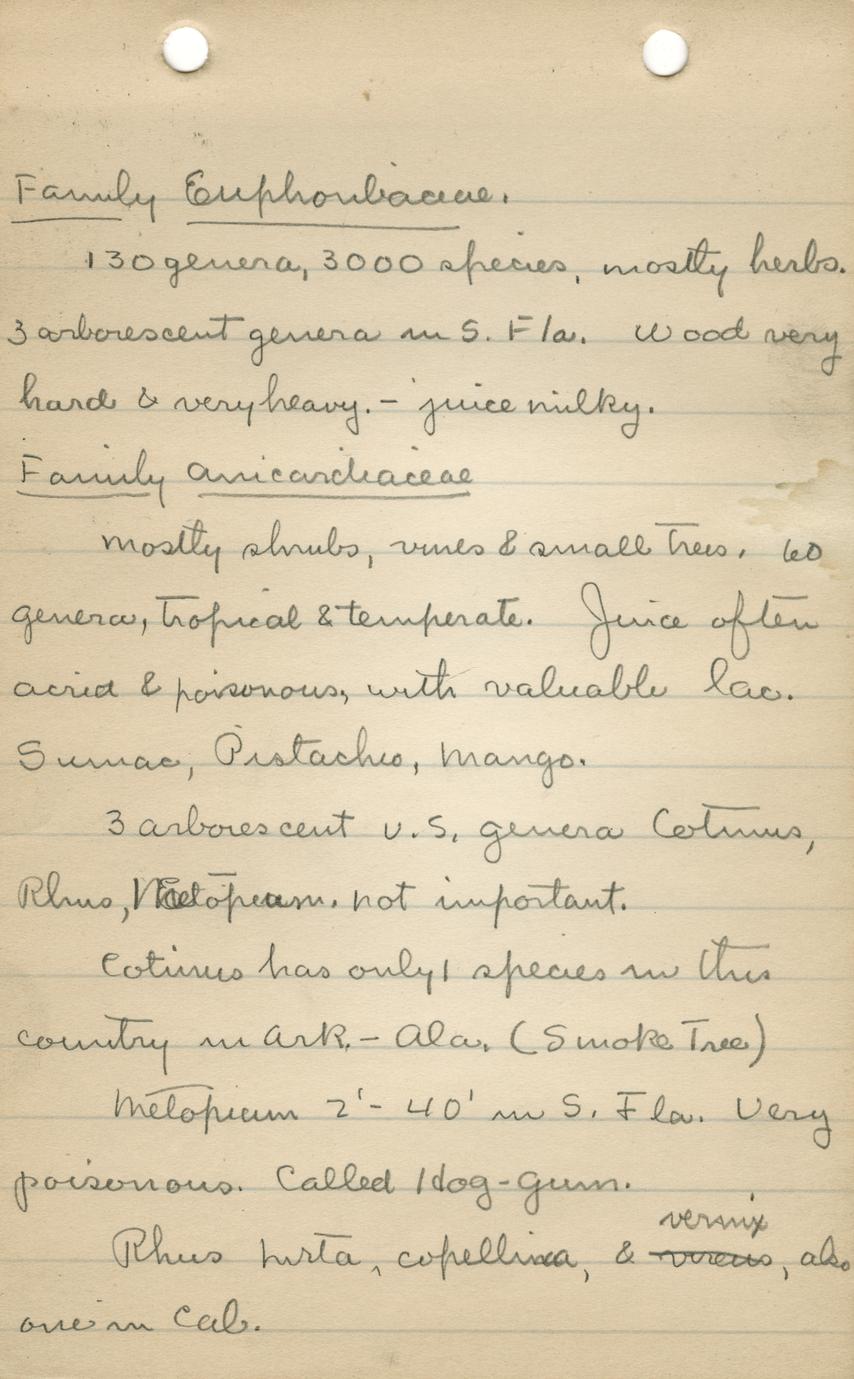 Family Euphorbiaceae.
130 genera, 3000 species, mostly herbs.
3 arborescent genera in S. Fla. Wood very
hard & very heavy. – juice milky.
Family Anicardiaceae
Mostly shrubs, vines & small trees. 60
genera, tropical & temperate. Juice often
acrid & poisonous, with valuable lac.
Sumac, Pistachio, Mango.
3 arborescent U.S. genera Cotinus,
Rhus, Metopium. not important.
Cotinus has only 1 species in this
country in Ark. – Ala. (Smoke Tree)
Metopium 2' - 40' in S. Fla. Very
poisonous. Called Hog-gum.
vernix
Rhus hirta, copellina, & virens, also
one in Cal.